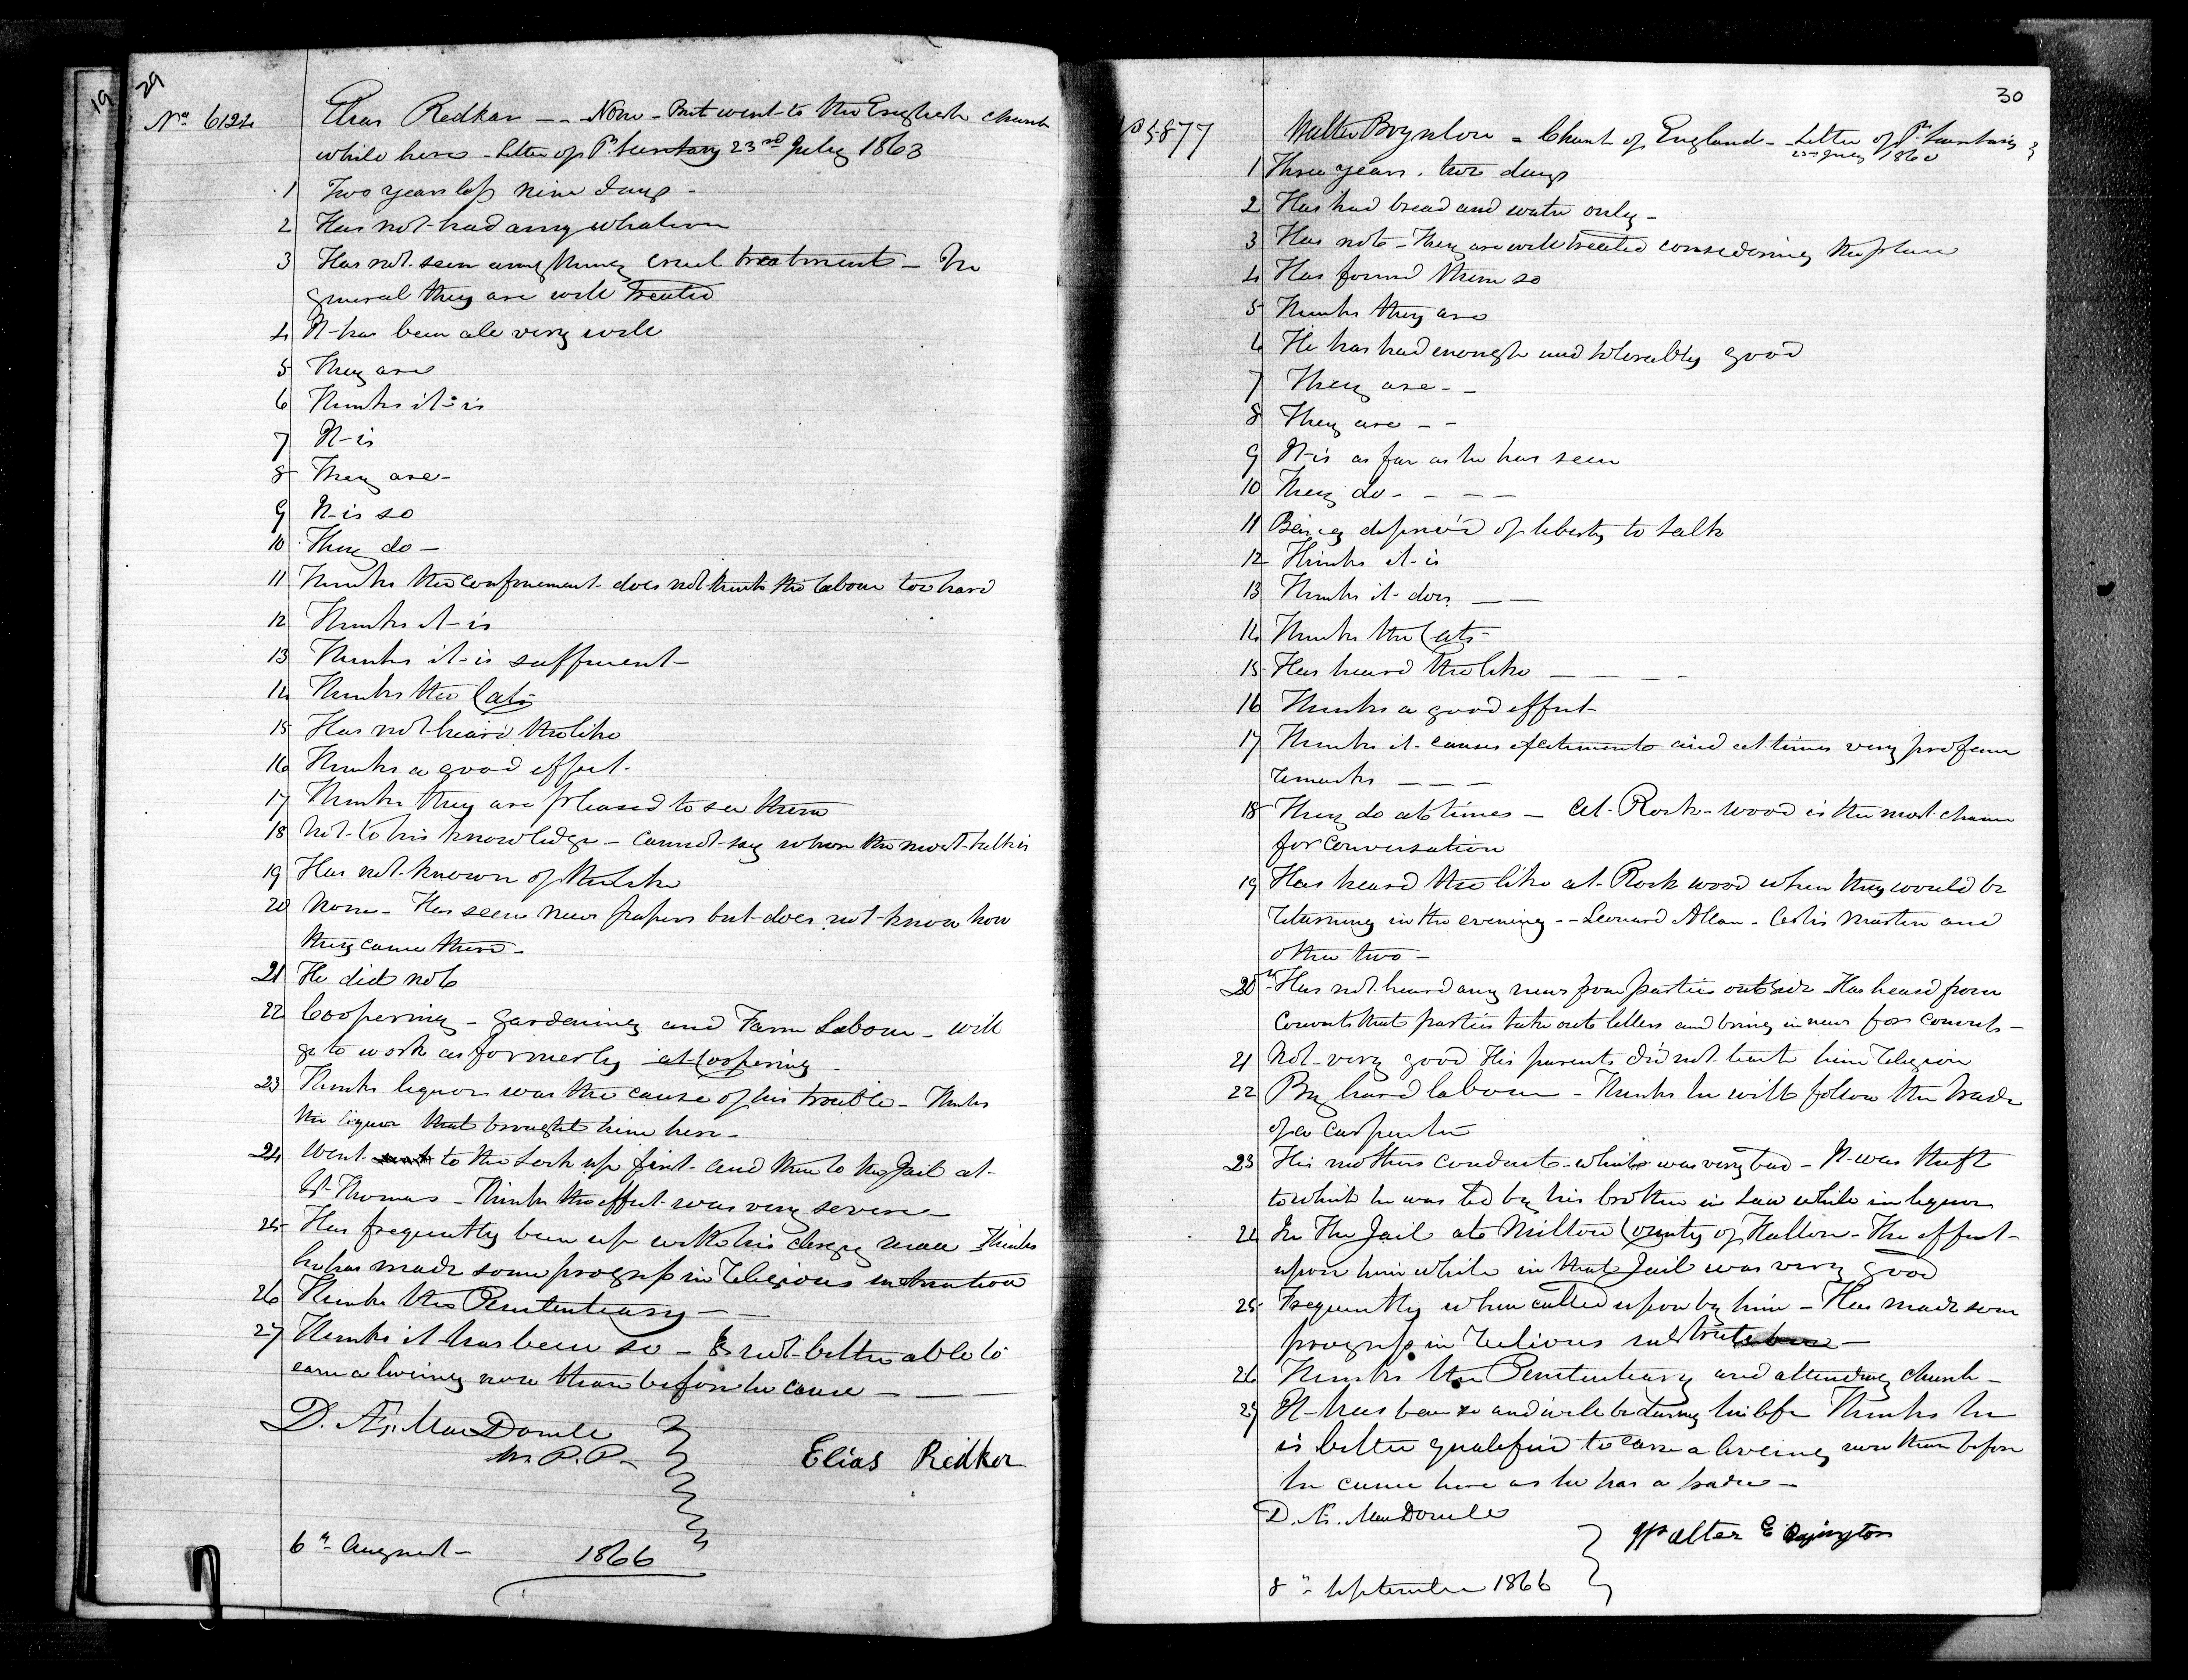 19
29
No 6122 Elias Redkar -- None - But went to the English church
while here - Letter of P. Secretary 23rd July 1863
1 Two years less nine days -
2 Has not had any whatever
3 Has not seen any thing cruel treatment - In
general they are well treated
4 It has been all very well
5 They are
6 Thinks it is
7 It is
8 They are -
9 It is so
10 They do -
11 Thinks the confinement does not think the labour too hard
12 Thinks it is
13 Thinks it is sufficient -
14 Thinks the Cats
15 Has not heard the like
16 Thinks a good effect -
17 Thinks they are pleased to see them
18 Not to his knowledge - cannot say where the most talk is
19 Has not known of the like
20 None - Has seen news papers but does not know how
they came there -
21 He did not
22 Coopering - gardening and Farm Labour - will
go to work as formerly at Coopering -
23 Thinks liquor was the cause of his trouble - Thinks
the liquor that brought him here -
24 Went to the Lock up first and then to the Jail at
St Thomas - Thinks the effect was very severe -
25 Has frequently been up with his clergy man Thinks
he has made some progress in religious instruction
26 Thinks the Penitentiary - -
27 Thinks it has been so - Is not better able to
earn a liveing now than before he came - - -
D. Æ. MacDonell
W. P. P.
Elias Redker
6th August - 1866
30
No 5877 Walter Boynton - Church of England - Letter of P. Secretary
1860
1 Three years, two days
2 Has had bread and water only -
3 Has not - They are well treated considering the place
4 Has found them so
5 Thinks they are
6 He has had enough and tolerably good
7 They are - -
8 They are - -
9 It is as far as he has seen
10 They do - - - -
11 Being depriv'd of liberty to talk
12 Thinks it is
13 Thinks it does - -
14 Thinks the Cats -
15 Has heard the like - - - -
16 Thinks a good effect -
17 Thinks it causes excitements and at times very profane
remarks - - -
18 They do at times - at Rock-wood is the most chance
for conversation
19 Has heard the like at Rock wood when they would be
returning in the evening -- Leonard Allan - Martin and
other two -
20 Has not heard any news from parties outside - Has heard from
convicts that parties take out letters and bring in news for convicts -
21 Not very good His parents did not teach him religion
22 By hard labour - Thinks he will follow the trade
of a carpenter
23 His mothers conduct - which was very bad - It was theft
to which he was led by his brother in Law while in liquor
24 In The Jail at Milton County of Halton - The effect -
upon him while in that Jail was very good
25 Frequently when called upon by him - Has made some
progress in relious
26 Thinks the Penitentiary and attending church -
27 It has been so and will be during his life Thinks he
is better qualified to earn a liveing now than before
he came here as he has a trade -
D. Æ. MacDonell
Walter E
8th September 1866